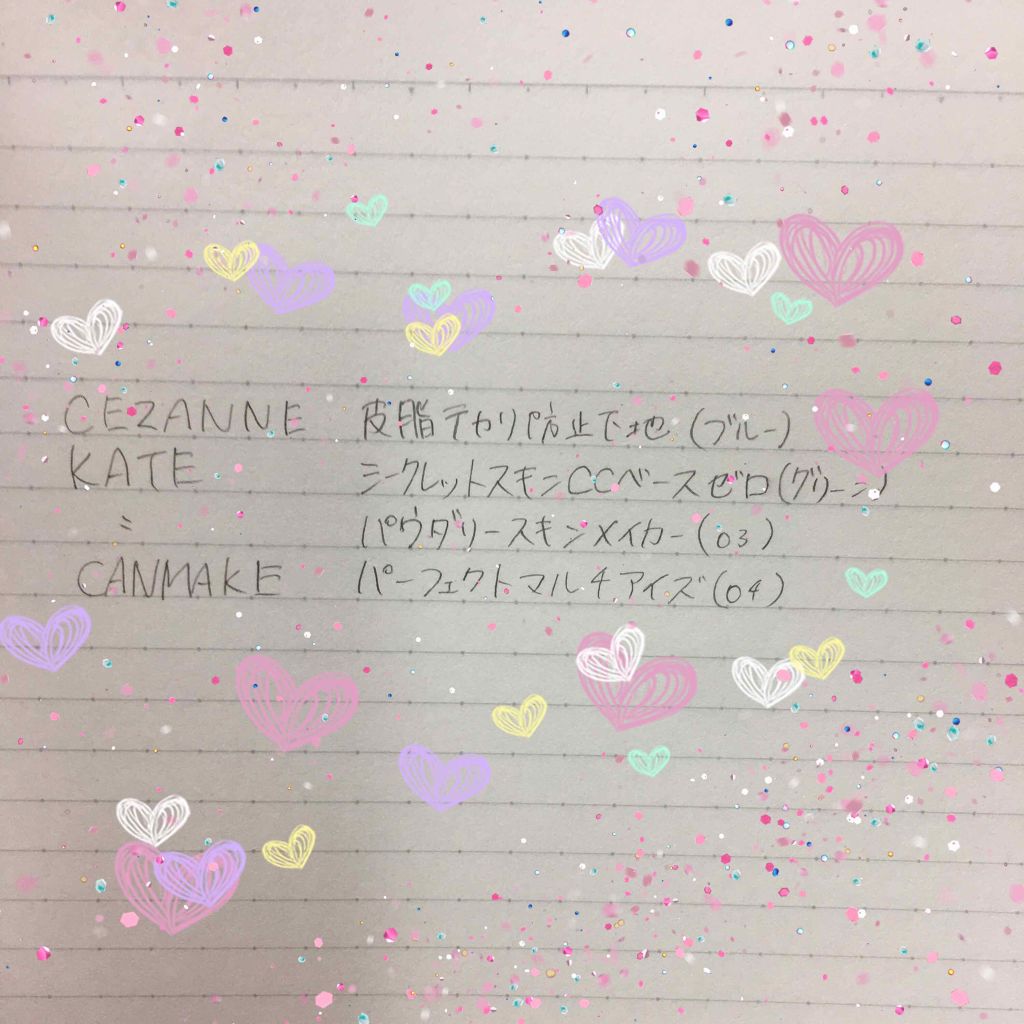 CEZANNE 皮脂テカリ防止下地 (ブルー)
KATE シークレットスキンCCベースゼロ(グリーン)
〃 パウダリースキンメイカー(03)
CANMAKE パーフェクトマルチアイズ(04)